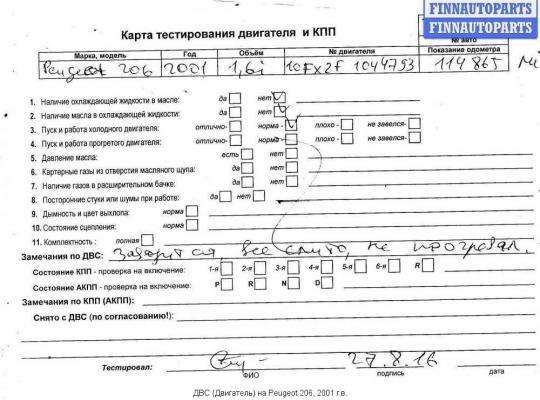 FINNAUTOPARTS
FINNAUTOPARTS
Карта тестирования двигателя и КПП
№ авто
Марка, модель Год Объём № двигателя Показание одометра
Peugeot 206 2001 1,6i 10FX2F 1044793 114 865
1. Наличие охлаждающей жидкости в масле: да нет
2. Наличие масла в охлаждающей жидкости: да нет
3. Пуск и работа холодного двигателя: отлично- норма - плохо - не завелся-
4. Пуск и работа прогретого двигателя: отлично- норма - плохо - не завелся-
5. Давление масла: есть нет
6. Картерные газы из отверстия масляного щупа: да нет
7. Наличие газов в расширительном бачке: да нет
8. Посторонние стуки или шумы при работе: да нет
9. Дымность и цвет выхлопа: норма
10. Состояние сцепления: норма
11. Комплектность : полная
Замечания по ДВС: Заводится, все слито, не прогревал.
Состояние КПП - проверка на включение: 1-я 2-я 3-я 4-я 5-я 6-я R
Состояние АКПП - проверка на включение: P R N D
Замечания по КПП (АКПП):
Снято с ДВС (по согласованию!):
Тестировал: 27.8.16
ФИО подпись дата
ДВС (Двигатель) на Peugeot 206, 2001 г.в.